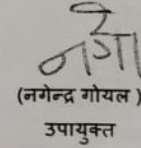 नगे
(नगेन्द्र गोयल )
उपायुक्त